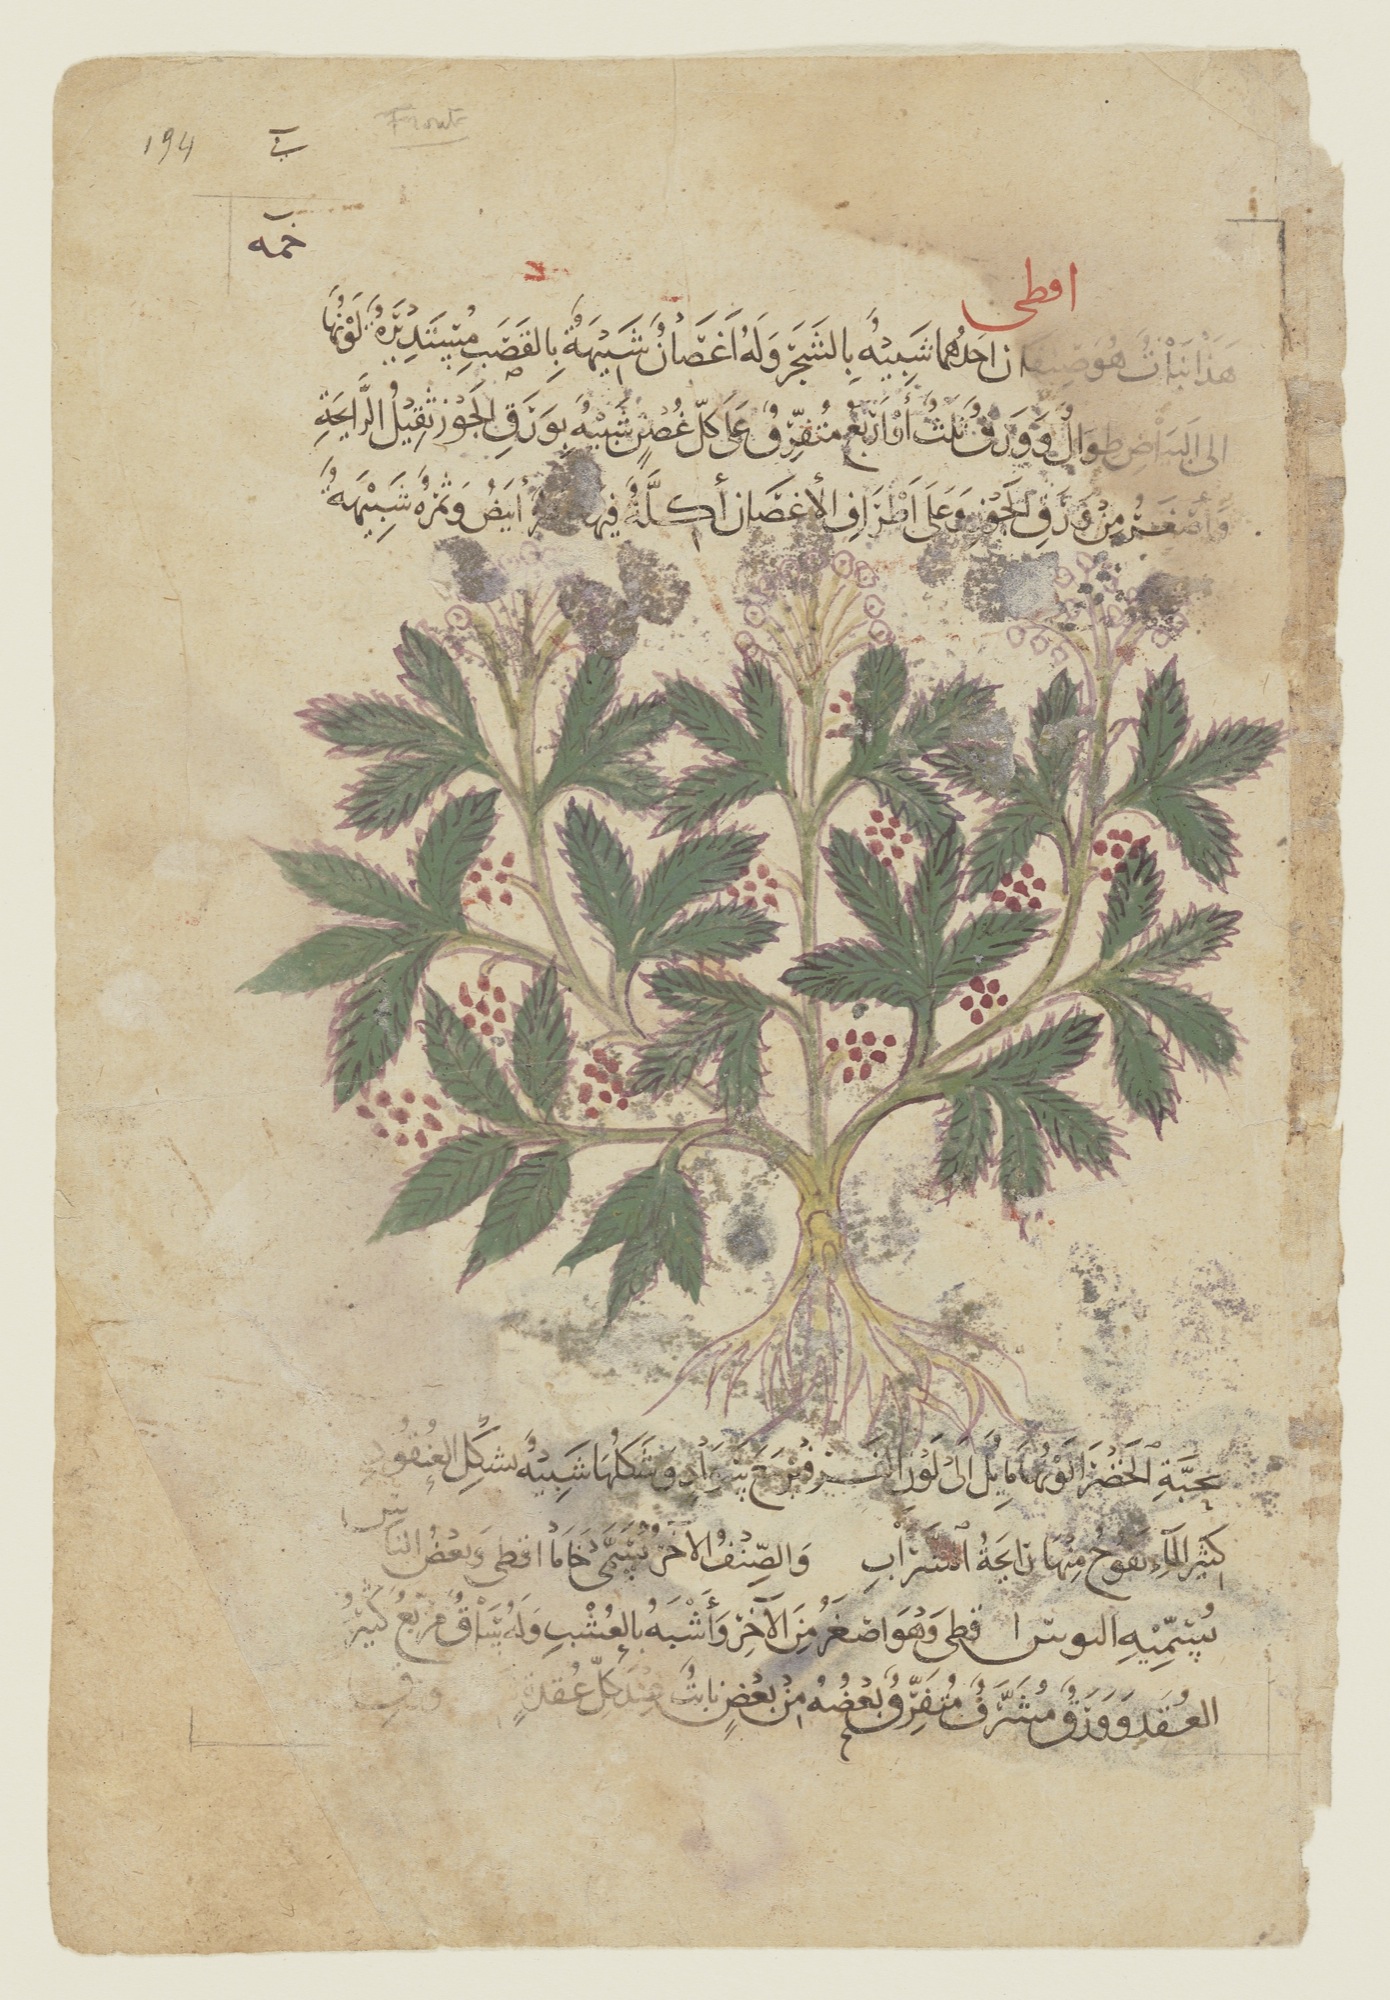 194
Front
خمه
اقطى
هَذَا نَبَاتٌ هُوَ صِنفَان احَدُهُما شَبِيْهٌ بِالشَجَرِ وَلَهُ اَغصَانٌ شَبيْهَةٌ بِالقَصَبِ مُستَدِيْرَةٌ لَوْنُهَا
الى البَيَاضِ طِوَالٌ وَوَرَقٌ ثَلثٌ أوْ اَرْبَعٌ مُتَفَرِّقٌ عَلَى كلّ غُصْنٍ شَبيْهٌ بِوَرَقِ الجَوْز ثَقِيْلُ الرَّايِحَةِ
وَأصْغَرُ مِنْ وَرَقِ الجَوْزِ وَعَلَى اَطْرَافِ الأغصَان أكِلَّةٌ فيها أبيَضُ وَثمَرُهُ شَبِيْهَةٌ
بِحَبَّةِ الخَضْرَا لَوْنُهَا مَايِلٌ الَى لَوْنِ وَشَكلُهَا شَبِيْهٌ بشكلِ العُنقُودِ
كَثيْرَ المَآءِ تَفُوحُ مِنْهَا رَايحَةُ الشَرَابِ وَالصِّنفُ الآخَرُ يُسَمَّى خَامَا اقطى وَبَعْضُ النَاسِ
يُسَمِّيْهِ اقطى وَهُوَ اصْغَرُ مِنَ الآخَرِ وَأَشْبَهُ بالعُشْبِ وَلَهُ سَاقٌ مُرَبَّعٌ كَثِيْرُ
العُقَدِ وَوَرَقٌ مُشَرَّفٌ مُتَفَرِّقٌ بَعْضُهُ مِنْ بَعْضٍ نابتٌ عِنْدَ كلّ عُقدَةٍ